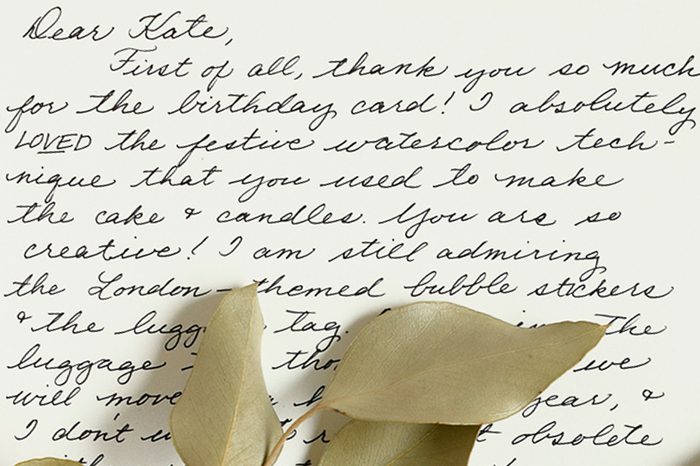 Dear Kate,
First of all, thank you so much
for the birthday card! I absolutely
LOVED the festive watercolor tech-
nique that you used to make
the cake & candles. You are so
creative! I am still admiring
the London-themed bubble stickers
& the tag. the
luggage we
will move year, &
I don't obsolete